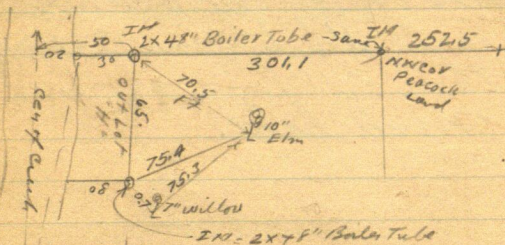 IM
2 X 48" Boiler Tube - Same
IM
252.5
50
20
30
301.1
NW Cor
Peacock
Land
Cent Creek
out Lot
65.
70.5
10"
Elm
75.4
75.3
80
20
7" Willow
IM = 2X48" Boiler Tube